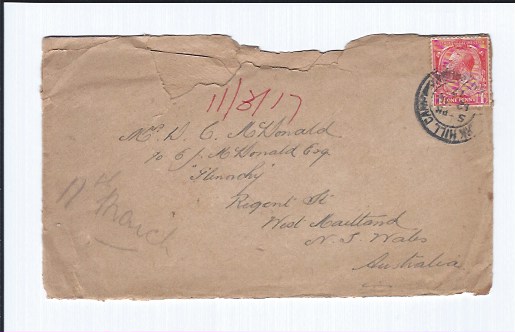 11/3/17
Mrs D. C. McDonald
c/o C/- McDonald Esq
Regent St
West Maitland
N. S. Wales
Australia
11th March
ONE PENNY
5 - PM
PARK HILL CAMP